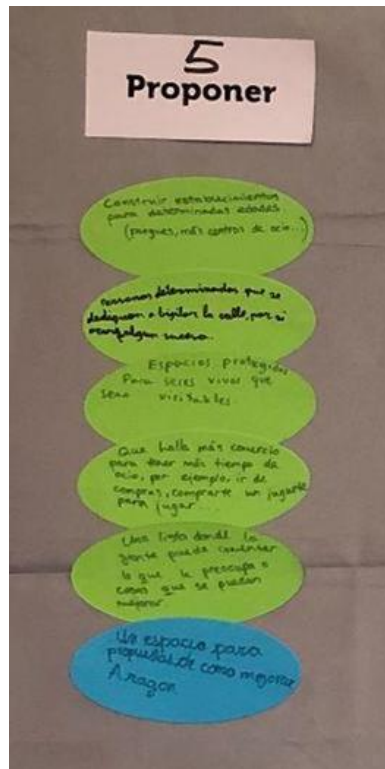 5
Proponer
Construir establecimientos
para determinadas edades
(parques, más centros de ocio...)
Personas determinadas que se
dediquen a bigilar la calle, por si
ocurre algun suceso.
Espacios protegidos
Para seres vivos que
sean visitables
Que halla más comercio
para tener más tiempo de
ocio, por ejemplo, ir de
compras, comprarte un juguete
para jugar...
Una lista donde la
gente pueda comentar
lo que le preocupa o
cosas que se puedan
mejorar
Un espacio para
propuestas de como mejorar
Aragon